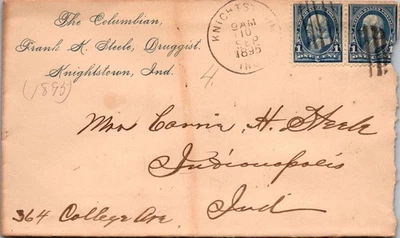 The Columbian,
Frank H. Steele, Druggist.
Knightstown, Ind.
(1895)
KNIGHTSTOWN
9 AM
10
SEP
1895
IND.
4.
1 1
ONE CENT
1 1
Carrie H. Steele
Indianopolis
Ind
364 College Ave